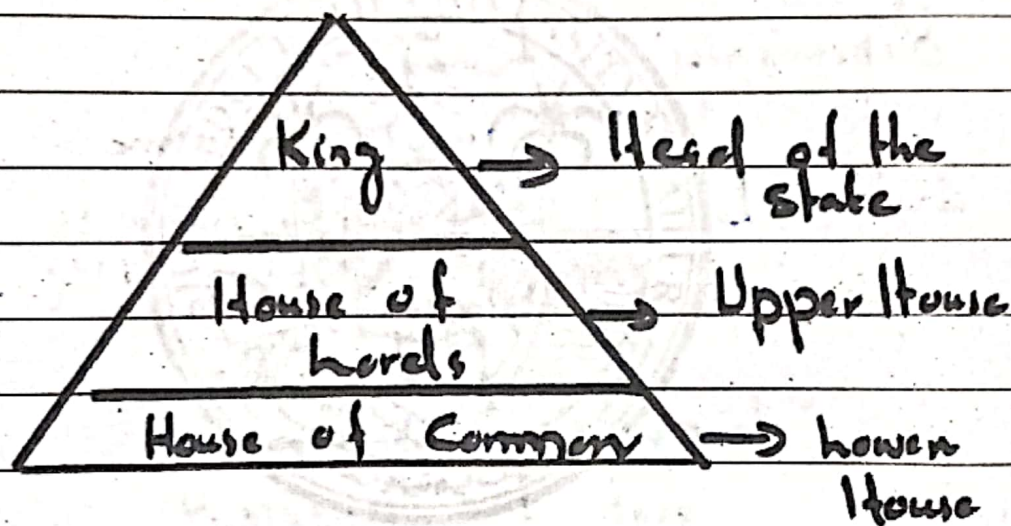 King → Head of the
state
House of
Lords
→ Upper House
House of Common → Lower
House